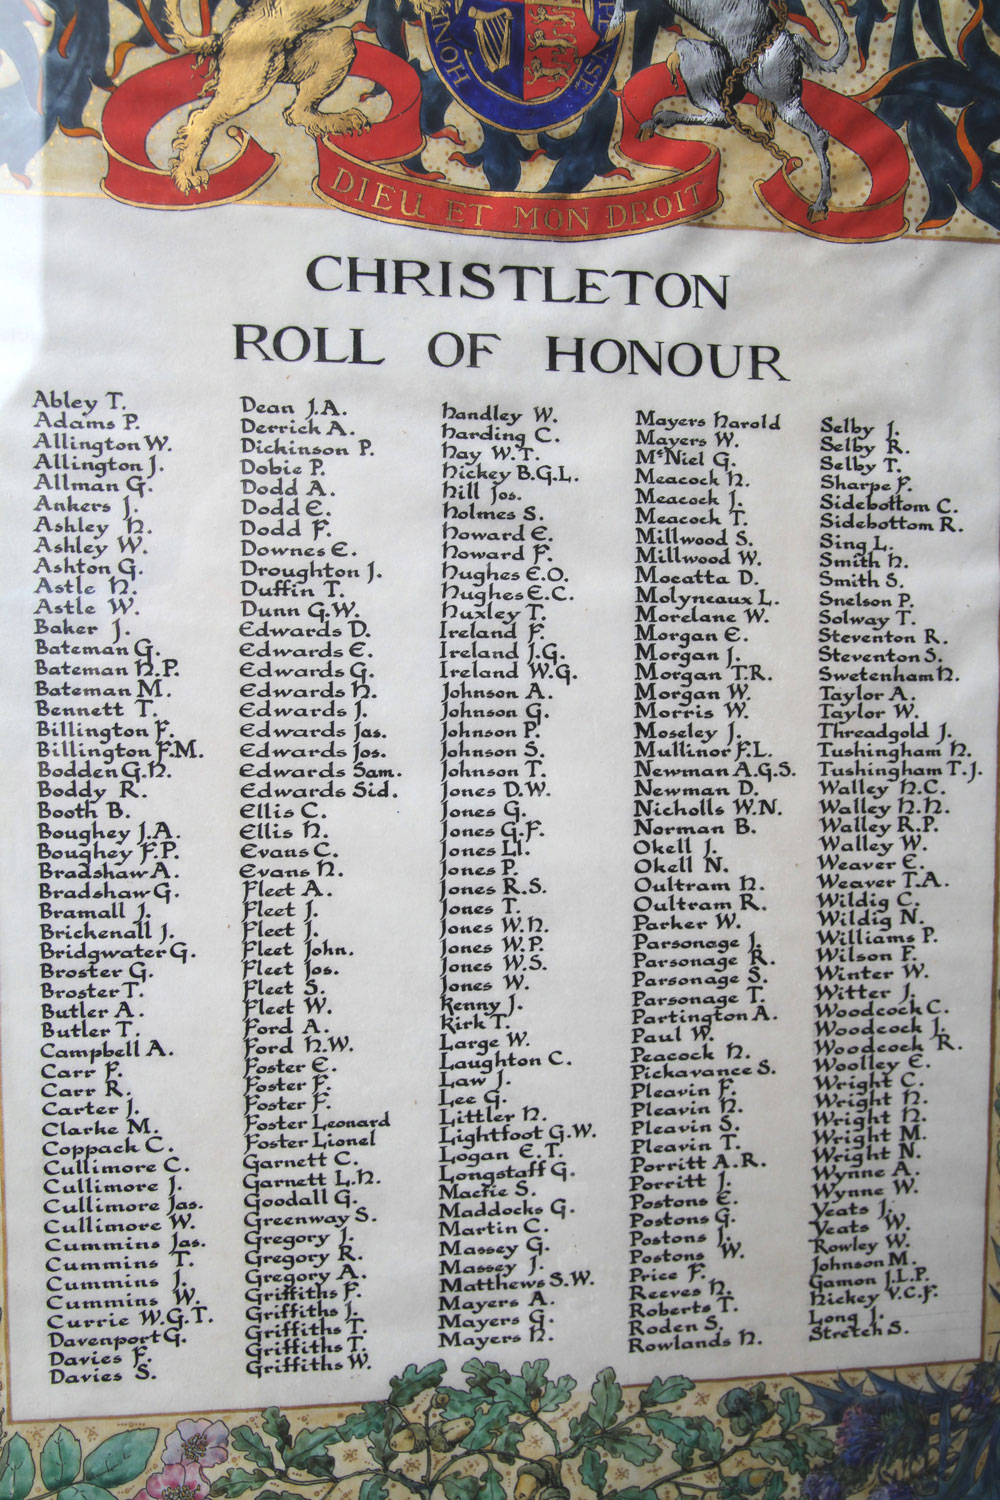 HONI
Y PENSE
DIEU ET MON DROIT
CHRISTLETON
ROLL OF HONOUR
Abley T.
Adams P.
Allington W.
Allington J.
Allman G.
Ankers J.
Ashley H.
Ashley W.
Ashton G.
Astle H.
Astle W.
Baker J.
Bateman G.
Bateman H.P.
Bateman M.
Bennett T.
Billington F.
Billington F.M.
Bodden G.H.
Boddy R.
Booth B.
Boughey J.A.
Boughey F.P.
Bradshaw A.
Bradshaw G.
Bramall J.
Brickenall J.
Bridgwater G.
Broster G.
Broster T.
Butler A.
Butler T.
Campbell A.
Carr F.
Carr R.
Carter J.
Clarke M.
Coppack C.
Cullimore C.
Cullimore J.
Cullimore Jas.
Cullimore W.
Cummins Jas.
Cummins T.
Cummins J.
Cummins W.
Currie W.G.T.
Davenport G.
Davies F.
Davies S.
Dean J.A.
Derrick A.
Dickinson P.
Dobie P.
Dodd A.
Dodd E.
Dodd F.
Downes E.
Droughton J.
Duffin T.
Dunn G.W.
Edwards D.
Edwards E.
Edwards G.
Edwards H.
Edwards J.
Edwards Jas.
Edwards Jos.
Edwards Sam.
Edwards Sid.
Ellis C.
Ellis H.
Evans C.
Evans H.
Fleet A.
Fleet J.
Fleet J.
Fleet John.
Fleet Jos.
Fleet S.
Fleet W.
Ford A.
Ford H.W.
Foster E.
Foster F.
Foster F.
Foster Leonard
Foster Lionel
Garnett C.
Garnett L.H.
Goodall G.
Greenway S.
Gregory J.
Gregory R.
Gregory A.
Griffiths F.
Griffiths J.
Griffiths T.
Griffiths T.
Griffiths W.
Handley W.
Harding C.
Hay W.T.
Hickey B.G.L.
Hill Jos.
Holmes S.
Howard E.
Howard F.
Hughes E.O.
Hughes E.C.
Huxley T.
Ireland F.
Ireland J.G.
Ireland W.G.
Johnson A.
Johnson G.
Johnson P.
Johnson S.
Johnson T.
Jones D.W.
Jones G.
Jones G.F.
Jones Ll.
Jones P.
Jones R.S.
Jones T.
Jones W.H.
Jones W.P.
Jones W.S.
Jones W.
Kenny J.
Kirk T.
Large W.
Laughton C.
Law J.
Lee G.
Littler H.
Lightfoot G.W.
Logan E.T.
Longstaff G.
Mackie S.
Maddocks G.
Martin C.
Massey G.
Massey J.
Matthews S.W.
Mayers A.
Mayers G.
Mayers H.
Mayers Harold
Mayers W.
McNiel G.
Meacock H.
Meacock J.
Meacock T.
Millwood S.
Millwood W.
Mocatta D.
Molyneaux L.
Morelane W.
Morgan E.
Morgan J.
Morgan T.R.
Morgan W.
Morris W.
Moseley J.
Mullinor F.L.
Newman A.G.S.
Newman D.
Nicholls W.N.
Norman B.
Okell J.
Okell N.
Oultram H.
Oultram R.
Parker W.
Parsonage J.
Parsonage R.
Parsonage S.
Parsonage T.
Partington A.
Paul W.
Peacock H.
Pickavance S.
Pleavin F.
Pleavin H.
Pleavin S.
Pleavin T.
Porritt A.R.
Porritt J.
Postons E.
Postons G.
Postons J.
Postons W.
Price F.
Reeves H.
Roberts T.
Roden S.
Rowlands H.
Selby J.
Selby R.
Selby T.
Sharpe F.
Sidebottom C.
Sidebottom R.
Sing L.
Smith H.
Smith S.
Snelson P.
Solway T.
Steventon R.
Steventon S.
Swetenham H.
Taylor A.
Taylor W.
Threadgold J.
Tushingham H.
Tushingham T.J.
Walley H.C.
Walley H.H.
Walley R.P.
Walley W.
Weaver E.
Weaver T.A.
Wildig C.
Wildig N.
Williams P.
Wilson F.
Winter W.
Witter J.
Woodcock C.
Woodcock J.
Woodcock R.
Woolley E.
Wright C.
Wright H.
Wright H.
Wright M.
Wright N.
Wynne A.
Wynne W.
Yeats J.
Yeats W.
Rowley W.
Johnson M.
Gamon J.L.P.
Hickey V.C.F.
Long J.
Stretch S.